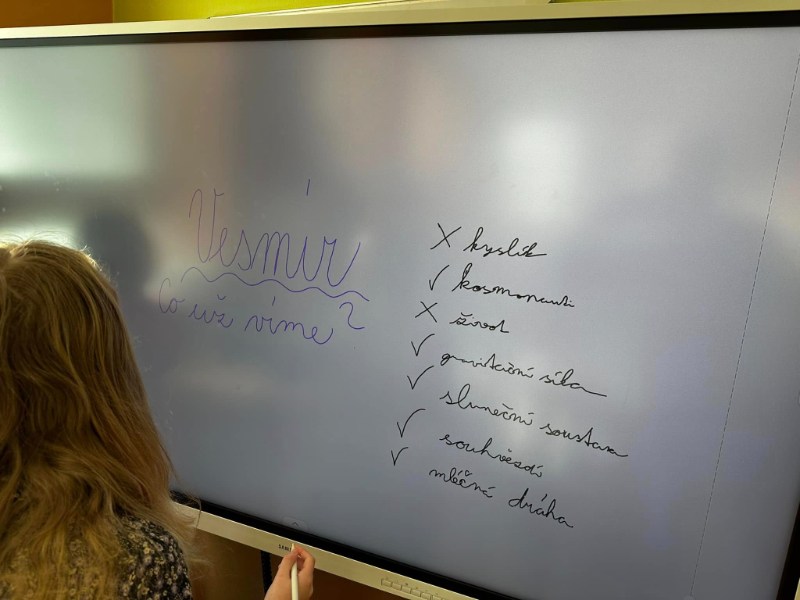 Vesmír
Co už víme?
X kyslík
✓ kosmonaut
X život
✓ gravitační síla
✓ sluneční soustava
✓ souhvězdí
✓ mléčná dráha